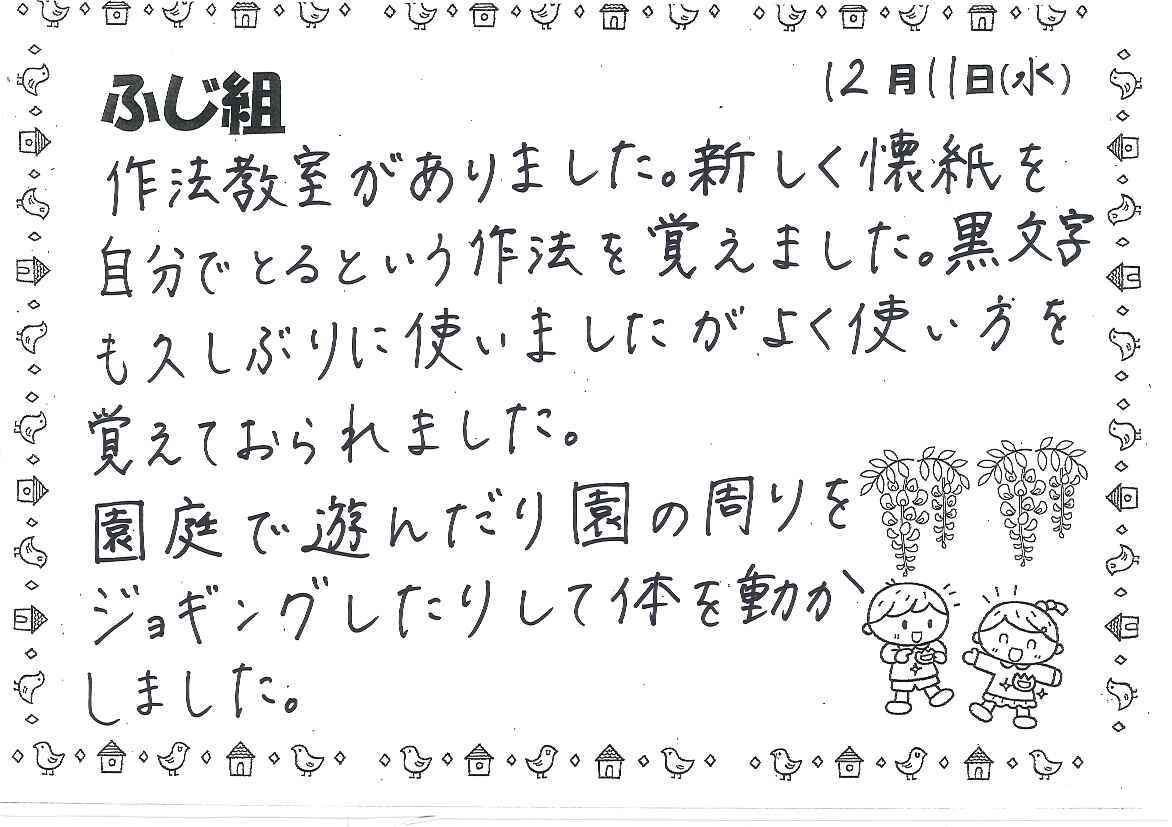 ふじ組
12月11日(水)
作法教室がありました。新しく懐紙を
自分でとるという作法を覚えました。黒文字
も久しぶりに使いましたがよく使い方を
覚えておられました。
園庭で遊んだり園の周りを
ジョギングしたりして体を動か
しました。